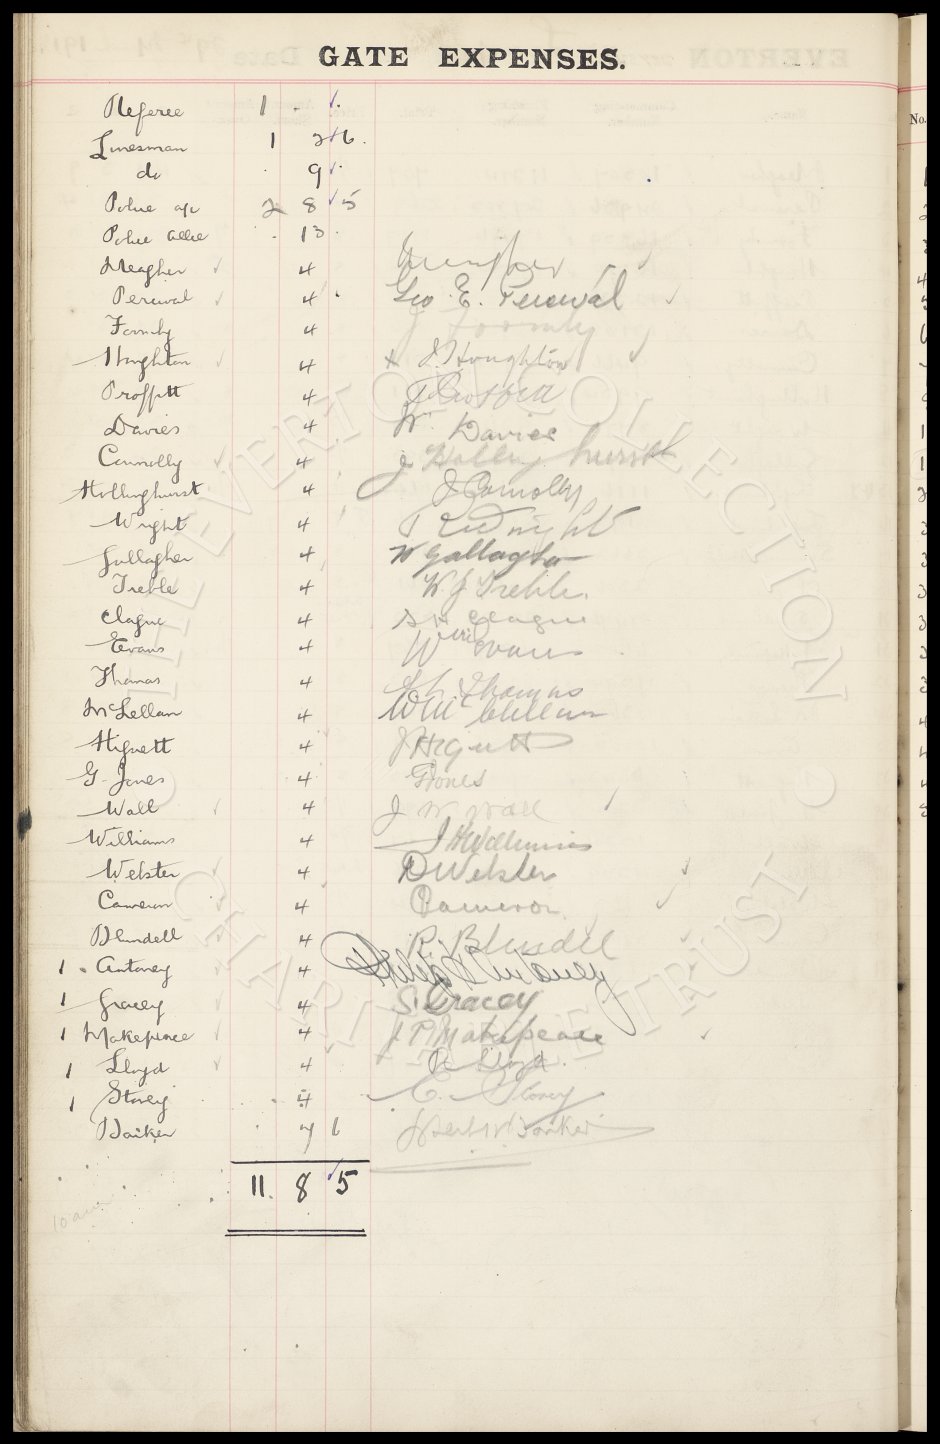 GATE EXPENSES.
No.
Referee 1 . .
Linesman 1 2 6.
do . 9 .
Police a/c 2 8 5
Police . 13 .
Meagher 4
Percival 4 . Geo E. Percival
Formby 4 J Formby
Houghton 4 x J. Houghton
Proffitt 4
Davies 4 Wm Davies
Connolly 4 J Hollinghurst
Hollinghurst 4 J Connolly
Wright 4 Wright
Gallagher 4 W Gallagher
Treble 4 W. J Treble.
Clague 4 Clague
Evans 4 Wm Evans
Thomas 4 Thomas
McLellan 4 W McClellan
Hignett 4 J Hignett
G. Jones 4 G Jones
Wall 4 J W Wall
Williams 4 J H Williams
Webster 4 D Webster
Cameron 4 Cameron
Blundell 4 R. Blundell
1 . Antoney 4 Philip Antoney
1 Gracey 4 S. Gracey
1 Makepeace 4 J P Makepeace
1 Lloyd 4 R Lloyd.
1 Storey 4 E. Storey
Barker . 7 6 Barker
11. 8 5
THE EVERTON COLLECTION
CHARITABLE TRUST